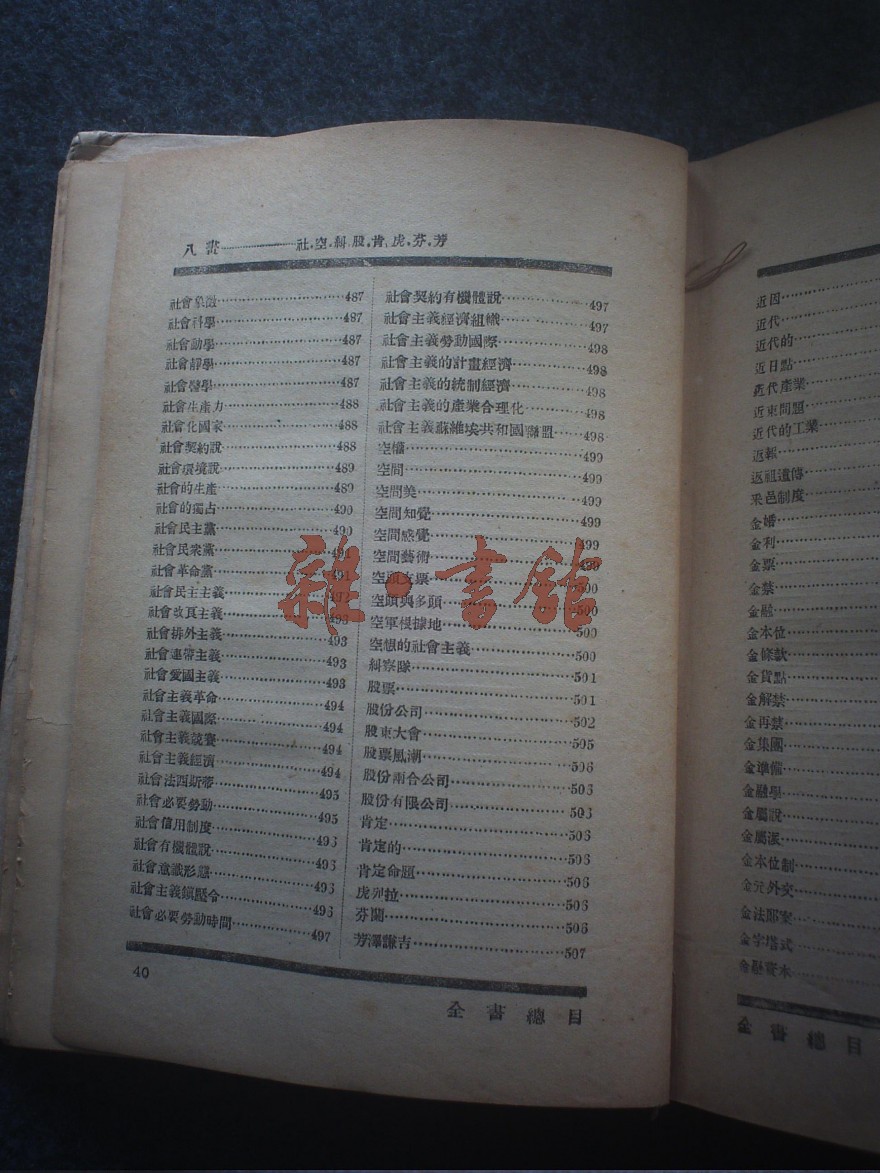 八畫————社.空.糾.股.肯.虎.芬.芳
社會象徵…………487
社會科學…………487
社會動學…………487
社會靜學…………487
社會醫學…………487
社會生產力…………488
社會化國家…………488
社會契約說…………488
社會環境說…………489
社會的生產…………489
社會的獨占…………490
社會民主黨…………490
社會民衆黨…………491
社會革命黨…………491
社會民主主義…………492
社會改良主義…………493
社會排外主義…………493
社會連帶主義…………493
社會愛國主義…………493
社會主義革命…………494
社會主義國際…………494
社會主義競賽…………494
社會主義經濟…………494
社會法西斯蒂…………495
社會必要勞動…………495
社會信用制度…………496
社會有機體說…………496
社會意識形態…………496
社會主義鎮壓令…………496
社會必要勞動時間…………497
社會契約有機體說…………497
社會主義經濟組織…………497
社會主義勞動國際…………498
社會主義的計畫經濟…………498
社會主義的統制經濟…………498
社會主義的產業合理化…………498
社會主義蘇維埃共和國聯盟……498
空權…………499
空間…………499
空間美…………499
空間知覺…………499
空間感覺…………499
空間藝術…………499
空頭支票…………500
空頭與多頭…………500
空軍根據地…………500
空想的社會主義…………500
糾察隊…………501
股票…………501
股份公司…………502
股東大會…………505
股票風潮…………506
股份兩合公司…………506
股份有限公司…………506
肯定…………506
肯定的…………506
肯定命題…………506
虎列拉…………506
芬蘭…………506
芳澤謙吉…………507
40
全書總目
雜·書館
近因
近代
近代的
近日點
近代產業
近東問題
近代的工業
返報
返祖遺傳
采邑制度
金婚
金利
金票
金禁
金融
金本位
金條款
金貨點
金解禁
金再禁
金集團
金準備
金融學
金屬說
金屬派
金本位制
金元外交
金法郎案
金字塔式
金融資本
全書總目